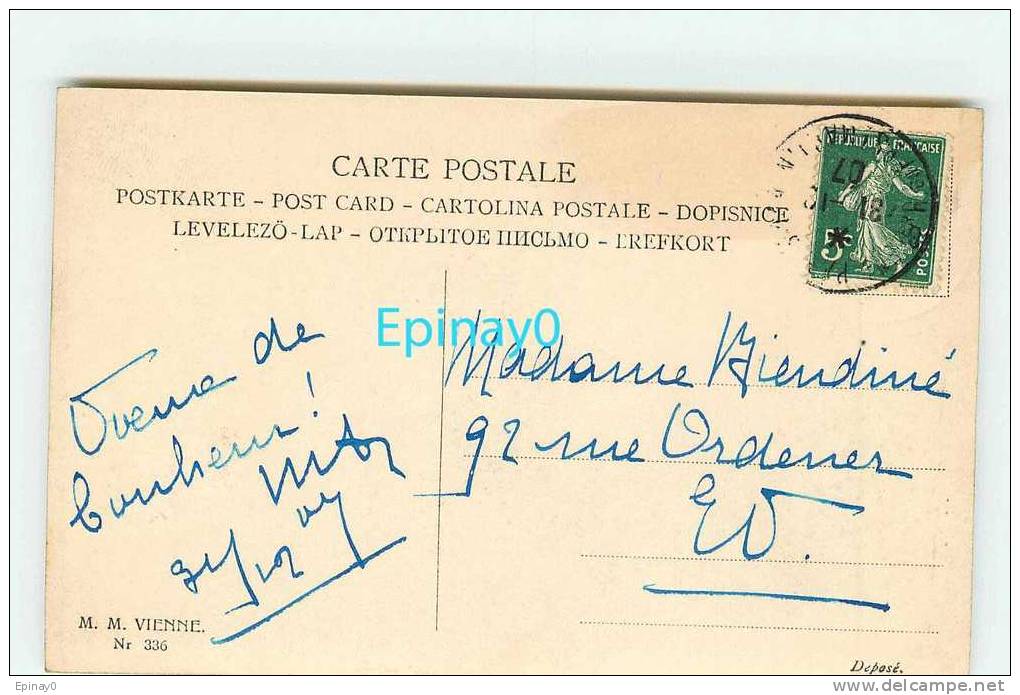 CARTE POSTALE
POSTKARTE - POST CARD - CARTOLINA POSTALE - DOPISNICE
LEVELEZÖ-LAP - ОТКРЫТОЕ ПИСЬМО - BREFKORT
REPUBLIQUE FRANÇAISE
07
31
5
POSTES
Epinay0
de
bonheur!
Madame
92 rue Ordener
EV.
M. M. VIENNE.
Nr 336
Deposé.
Epinay0
www.delcampe.net